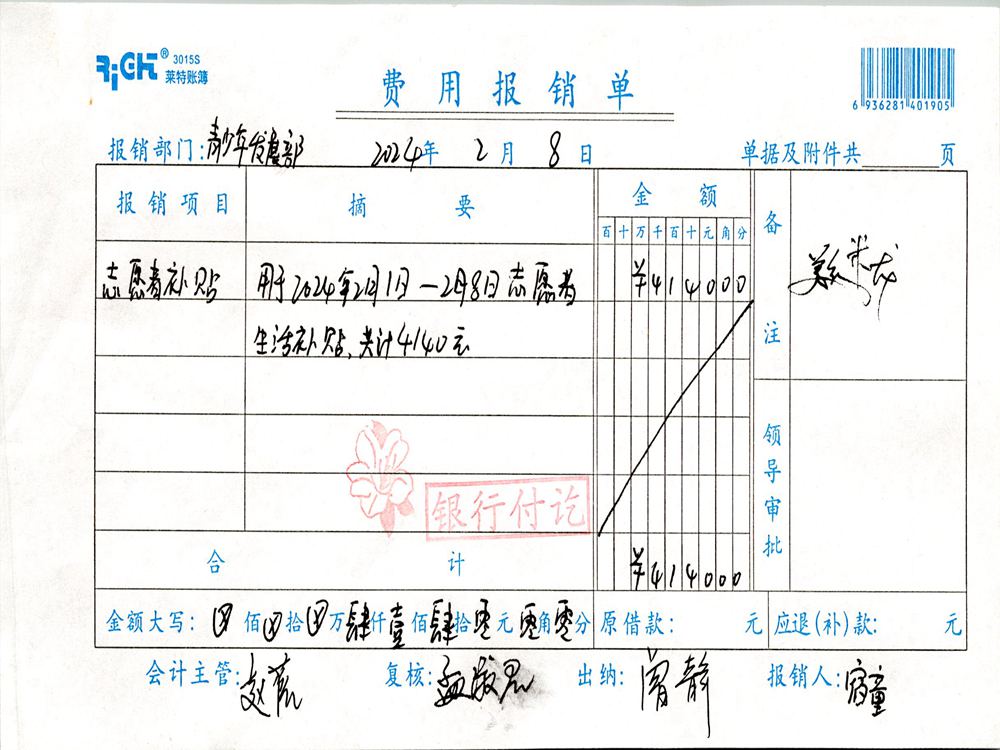 RiGHT® 3015S
莱特账簿
费用报销单
6 936281 401905
报销部门:青少年发展部 2024年 2月 8日 单据及附件共 页
报销项目 摘要 金额 备注
百十万千百十元角分
志愿者补贴 用于2024年2月1日—2月8日志愿者 ¥414000
生活补贴,共计4140元
领导审批
银行付讫
合计 ¥414000
金额大写: 佰 拾 万肆仟壹佰肆拾零元零角零分 原借款: 元 应退(补)款: 元
会计主管: 复核: 出纳:曾静 报销人: